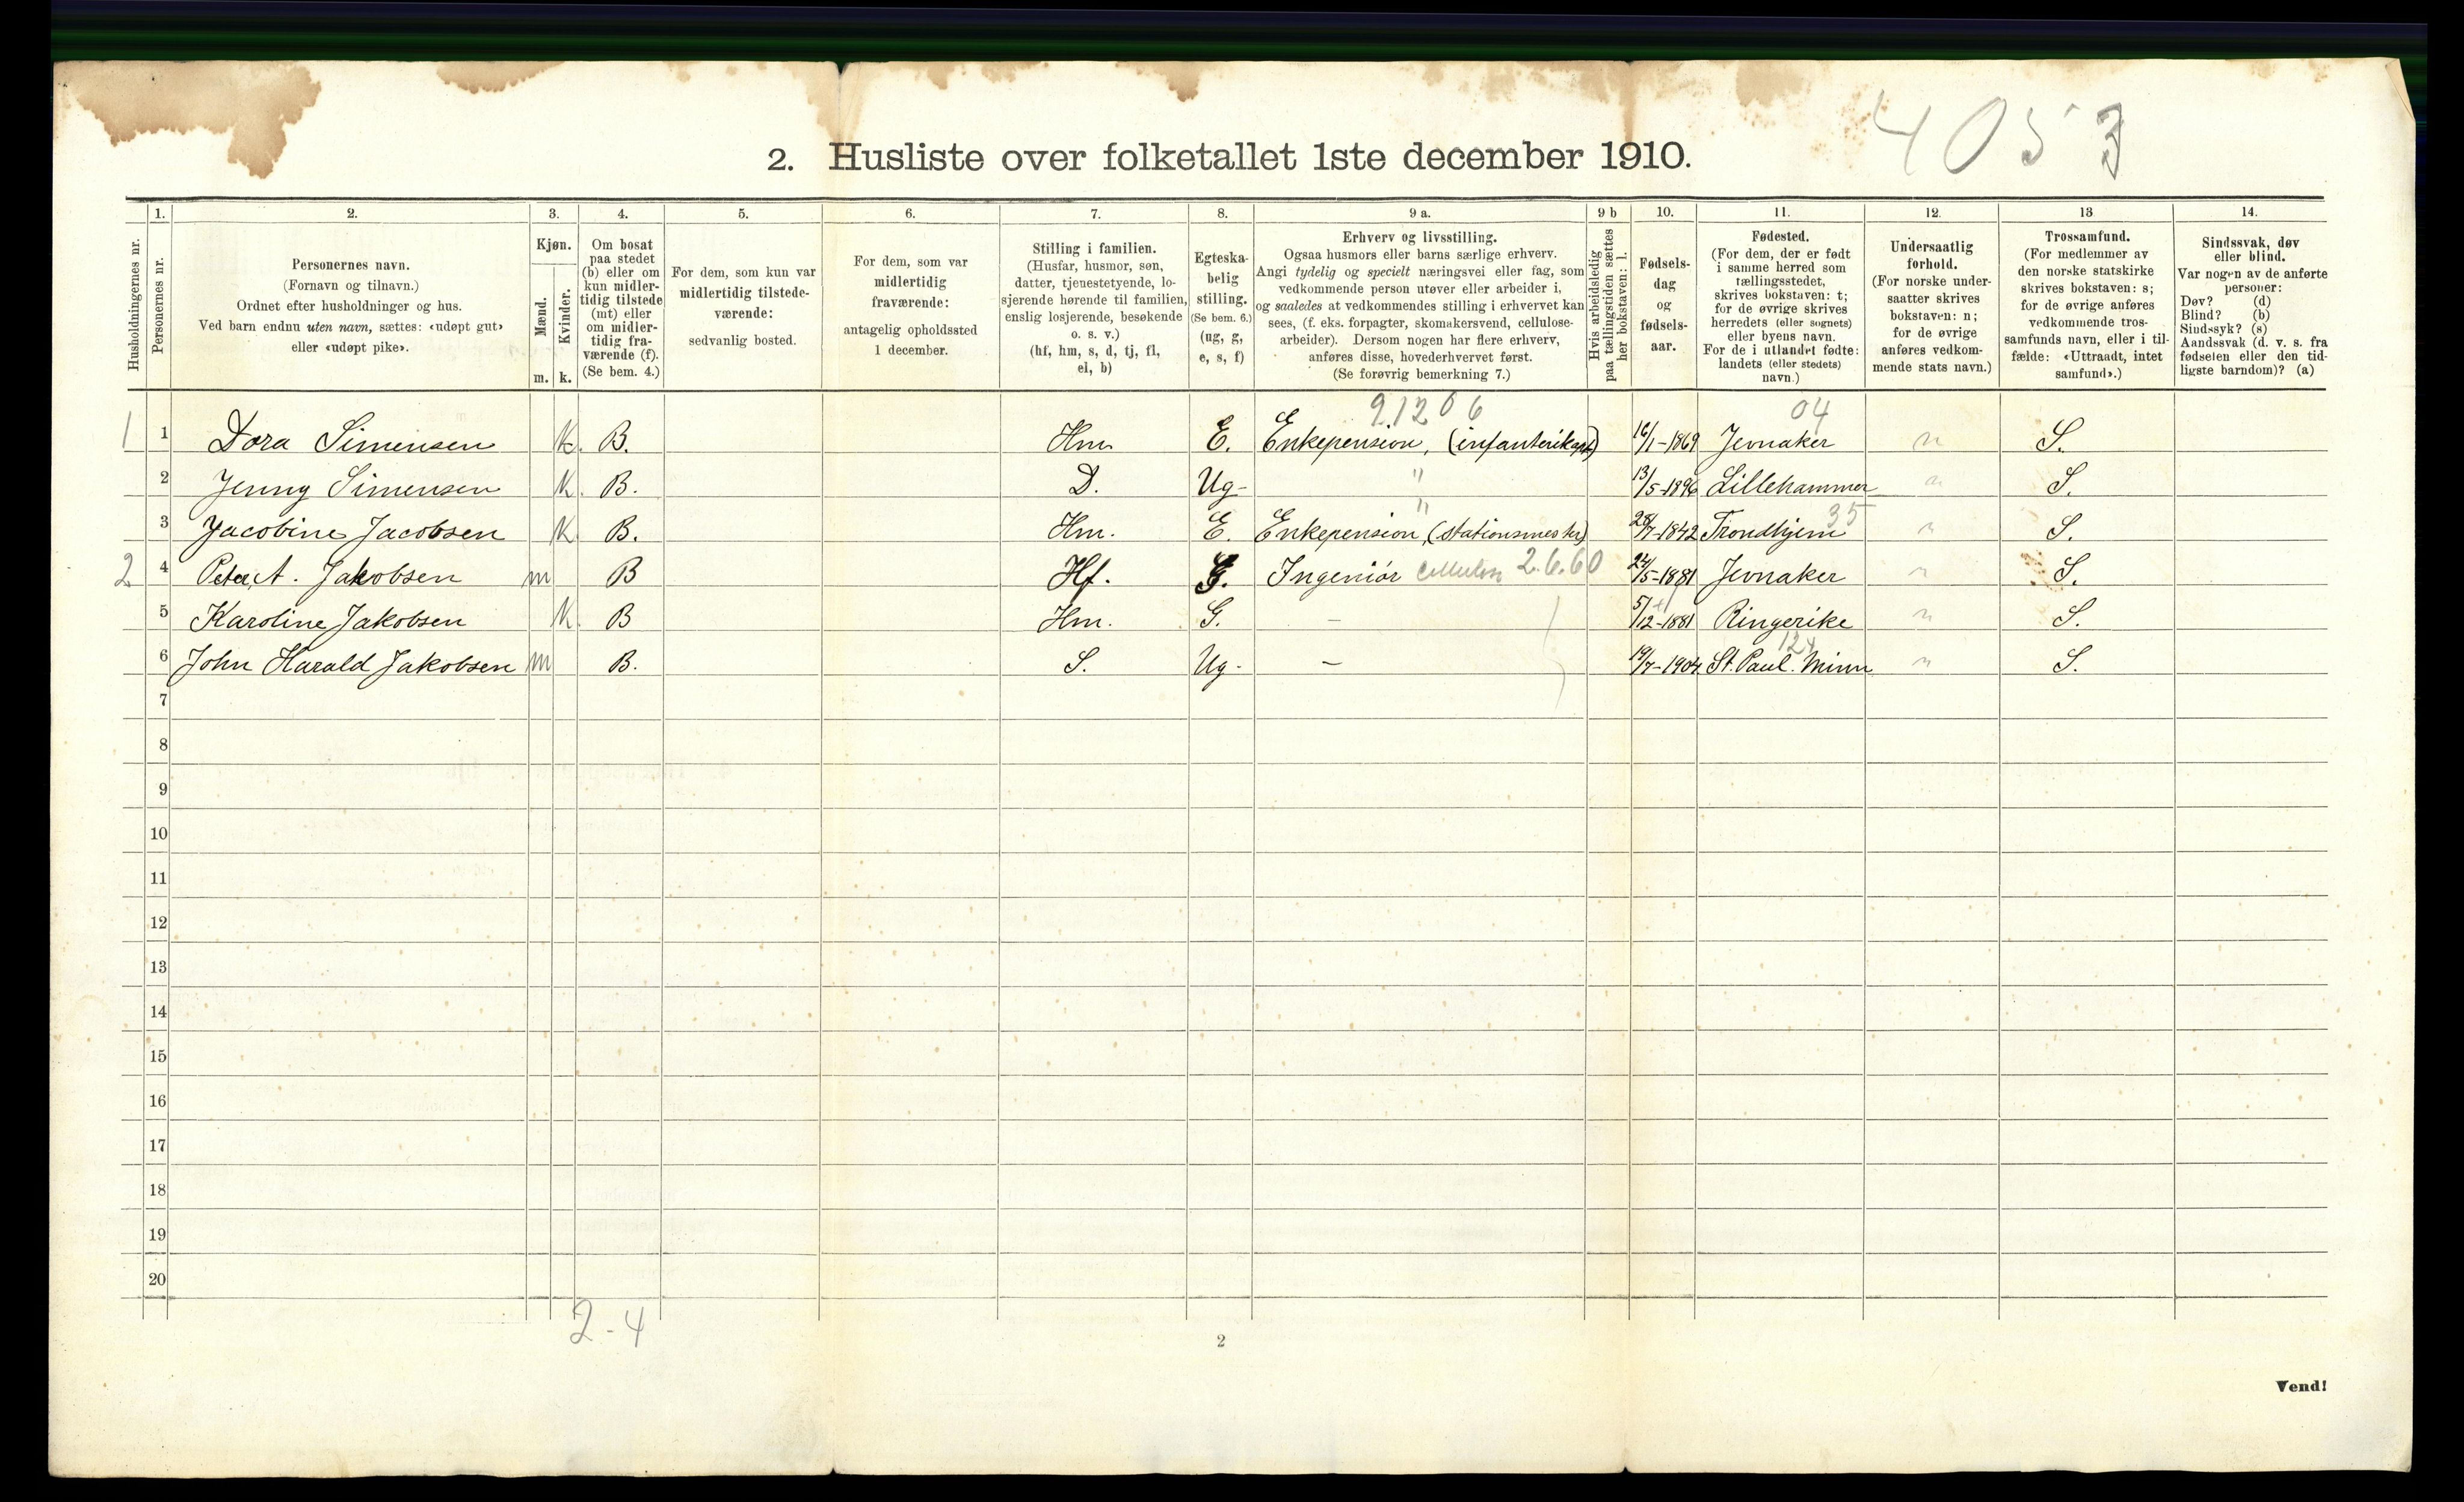 4053
2. Husliste over folketallet 1ste december 1910.
1. 2. 3. 4. 5. 6. 7. 8. 9 a. 9 b 10. 11. 12. 13 14.
Husholdningernes nr.
Personernes nr.
Personernes navn.
(Fornavn og tilnavn.)
Ordnet efter husholdninger og hus.
Ved barn endnu uten navn, sættes: «udøpt gut»
eller «udøpt pike».
Kjøn.
Mænd.
m.
Kvinder.
k.
Om bosat
paa stedet
(b) eller om
kun midler-
tidig tilstede
(mt) eller
om midler-
tidig fra-
værende (f).
(Se bem. 4.)
For dem, som kun var
midlertidig tilstede-
værende:
sedvanlig bosted.
For dem, som var
midlertidig
fraværende:
antagelig opholdssted
1 december.
Stilling i familien.
(Husfar, husmor, søn,
datter, tjenestetyende, lo-
sjerende hørende til familien,
enslig losjerende, besøkende
o. s. v.)
(hf, hm, s, d, tj, fl,
el, b)
Egteska-
belig
stilling.
(Se bem. 6.)
(ug, g,
e, s, f)
Erhverv og livsstilling.
Ogsaa husmors eller barns særlige erhverv.
Angi tydelig og specielt næringsvei eller fag, som
vedkommende person utøver eller arbeider i,
og saaledes at vedkommendes stilling i erhvervet kan
sees, (f. eks. forpagter, skomakersvend, cellulose-
arbeider). Dersom nogen har flere erhverv,
anføres disse, hovederhvervet først.
(Se forøvrig bemerkning 7.)
Hvis arbeidsledig
paa tællingstiden sættes
her bokstaven: l.
Fødsels-
dag
og
fødsels-
aar.
Fødested.
(For dem, der er født
i samme herred som
tællingsstedet,
skrives bokstaven: t;
for de øvrige skrives
herredets (eller sognets)
eller byens navn.
For de i utlandet fødte:
landets (eller stedets)
navn.)
Undersaatlig
forhold.
(For norske under-
saatter skrives
bokstaven: n;
for de øvrige
anføres vedkom-
mende stats navn.)
Trossamfund.
(For medlemmer av
den norske statskirke
skrives bokstaven: s;
for de øvrige anføres
vedkommende tros-
samfunds navn, eller i til-
fælde: «Uttraadt, intet
samfund».)
Sindssvak, døv
eller blind.
Var nogen av de anførte
personer:
Døv? (d)
Blind? (b)
Sindssyk? (s)
Aandssvak (d. v. s. fra
fødselen eller den tid-
ligste barndom)? (a)
91206 04
1 1 Dora Simensen K. B. Hm. E. Enkepension, (infanterikapt) 16/1-1869 Jevnaker n S.
2 Jenny Simensen K. B. D. Ug- " 13/5-1896 Lillehammer n S.
" 35
3 Jacobine Jacobsen K B. Hm. E. Enkepension, (stationsmester) 28/7-1842 Trondhjem n S.
2 4 Peter A. Jakobsen m B Hf. G. Ingeniór Cellulose 2.6.60 24/5-1881 Jevnaker n S.
5 Karoline Jakobsen K. B Hm. G. - 5/12-1881 Ringerike n S.
124
6 John Harald Jakobsen m B. S. Ug- - 19/7-1904. St. Paul. Minn n S.
7
8
9
10
11
12
13
14
15
16
17
18
19
20
2-4
2
Vend!